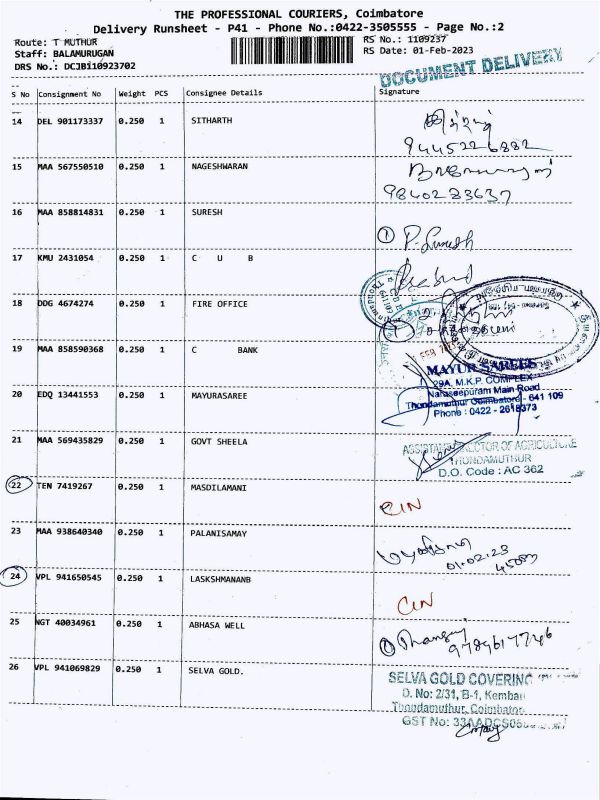 THE PROFESSIONAL COURIERS, Coimbatore
Delivery Runsheet - P41 - Phone No.:0422-3505555 - Page No.:2
Route: T MUTHUR
RS No.: 1109237
Staff: BALAMURUGAN
RS Date: 01-Feb-2023
DRS No.: DCJB110923702
DOCUMENT DELIVERY
S No Consignment No Weight PCS Consignee Details Signature
14 DEL 901173337 0.250 1 SITHARTH
9445226882
15 MAA 567550510 0.250 1 NAGESHWARAN
9840283637
16 MAA 858814831 0.250 1 SURESH
P. Suresh
17 KMU 2431054 0.250 1 C U B
18 DDG 4674274 0.250 1 FIRE OFFICE
19 MAA 858590368 0.250 1 C BANK
MAYUR SAREES
29A, M.K.P. COMPLEX
Naraseepuram Main Road
Thondamuthur Coimbatore - 641 109
Phone : 0422 - 2618373
20 EDQ 13441553 0.250 1 MAYURASAREE
21 MAA 569435829 0.250 1 GOVT SHEELA
ASSISTANT DIRECTOR OF AGRICULTURE
THONDAMUTHUR
D.O. Code : AC 362
22 TEN 7419267 0.250 1 MASDILAMANI
CIN
23 MAA 938640340 0.250 1 PALANISAMAY
01.02.23
24 VPL 941650545 0.250 1 LASKSHMANANB
CIN
25 NGT 40034961 0.250 1 ABHASA WELL
26 VPL 941069829 0.250 1 SELVA GOLD.
SELVA GOLD COVERING
D. No: 2/31, B-1, Kemban
Thondamuthur, Coimbatore
GST No: 33AADCS05